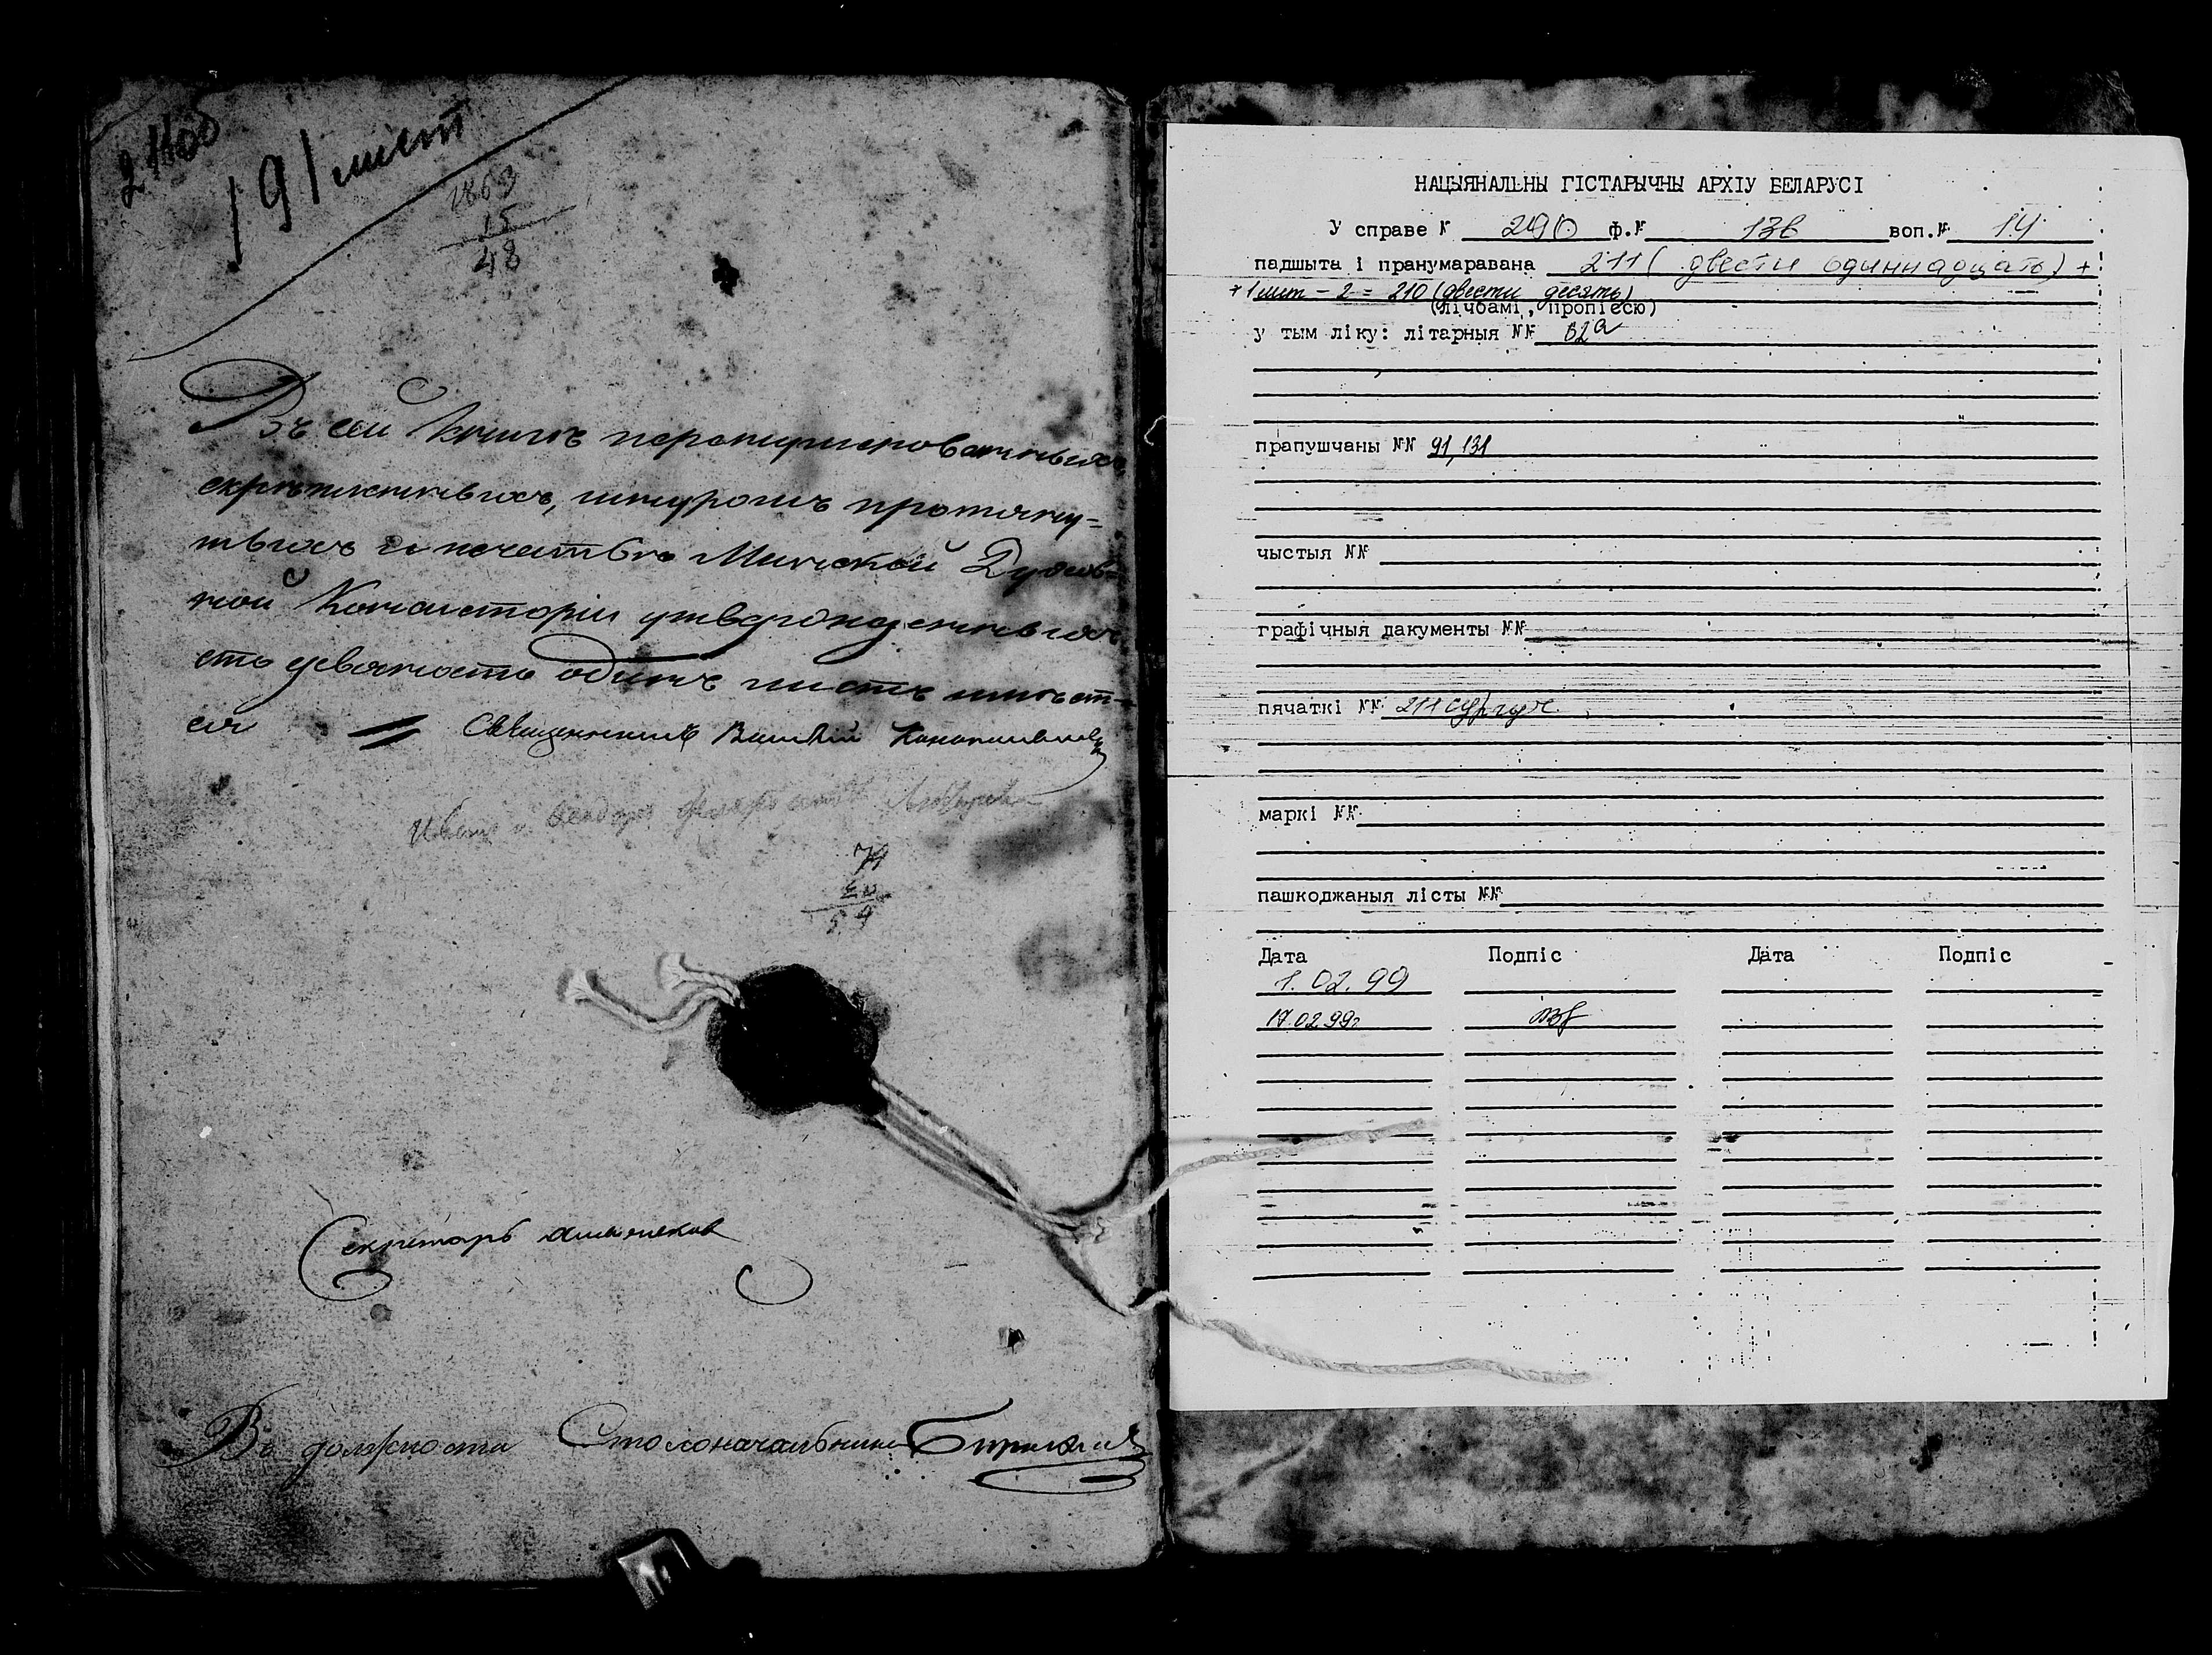 191 лист
1863
15
48
Въ сей Книгѣ перенумерованныхъ,
скрѣпленныхъ, шнуромъ протяну=
тыхъ и печатью Минской Духов=
ной Консисторіи утвержденныхъ
сто девяносто одинъ листъ имѣет-
ся
Священникъ
Секретарь
Въ должности Столоначальника
НАЦЫЯНАЛЬНЫ ГІСТАРЫЧНЫ АРХІУ БЕЛАРУСІ
У справе № 290 ф.№ 136 воп.№ 14
падшыта і пранумаравана 211 ( двести одиннадцать) +
+ 1 лит - 2 = 210 (двести десять)
(лічбамі, пропіссю)
у тым ліку: літарныя №№
прапушчаны №№ 91, 131
чыстыя №№
графічныя дакументы №№
пячаткі №№ 211 сургуч.
маркі №№
пашкоджаныя лісты №№
Дата Подпіс Дата Подпіс
1.02.99
17.02.99г